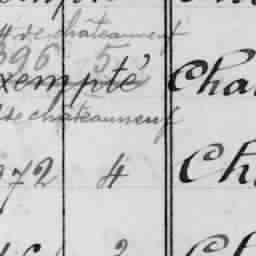 4 de châteauneuf
396 5
exempté Cha
de châteauneuf
972 4 Ch